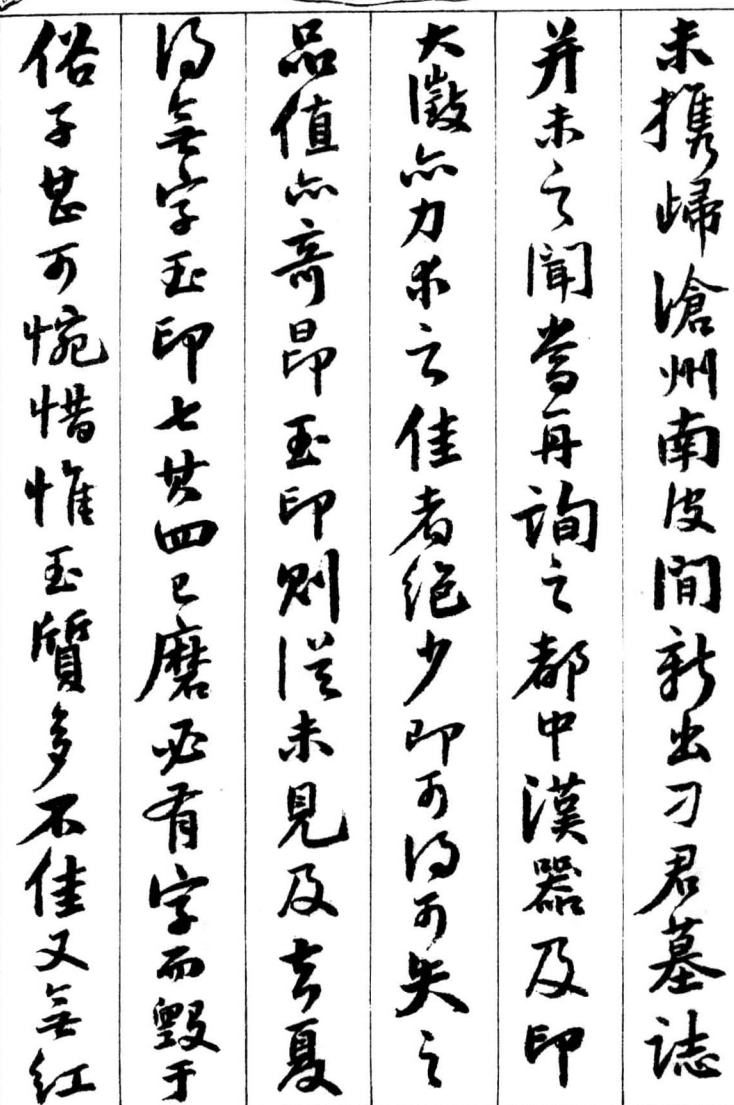 未携歸滄州南皮間新出刁君墓誌
并未之聞當再詢之都中漢器及印
大澂亦力求之佳者絕少即可得可失之
品值亦奇昂玉印則從未見及去夏
得無字玉印七其四已磨必有字而毀于
俗子甚可惋惜惟玉質多不佳又無紅